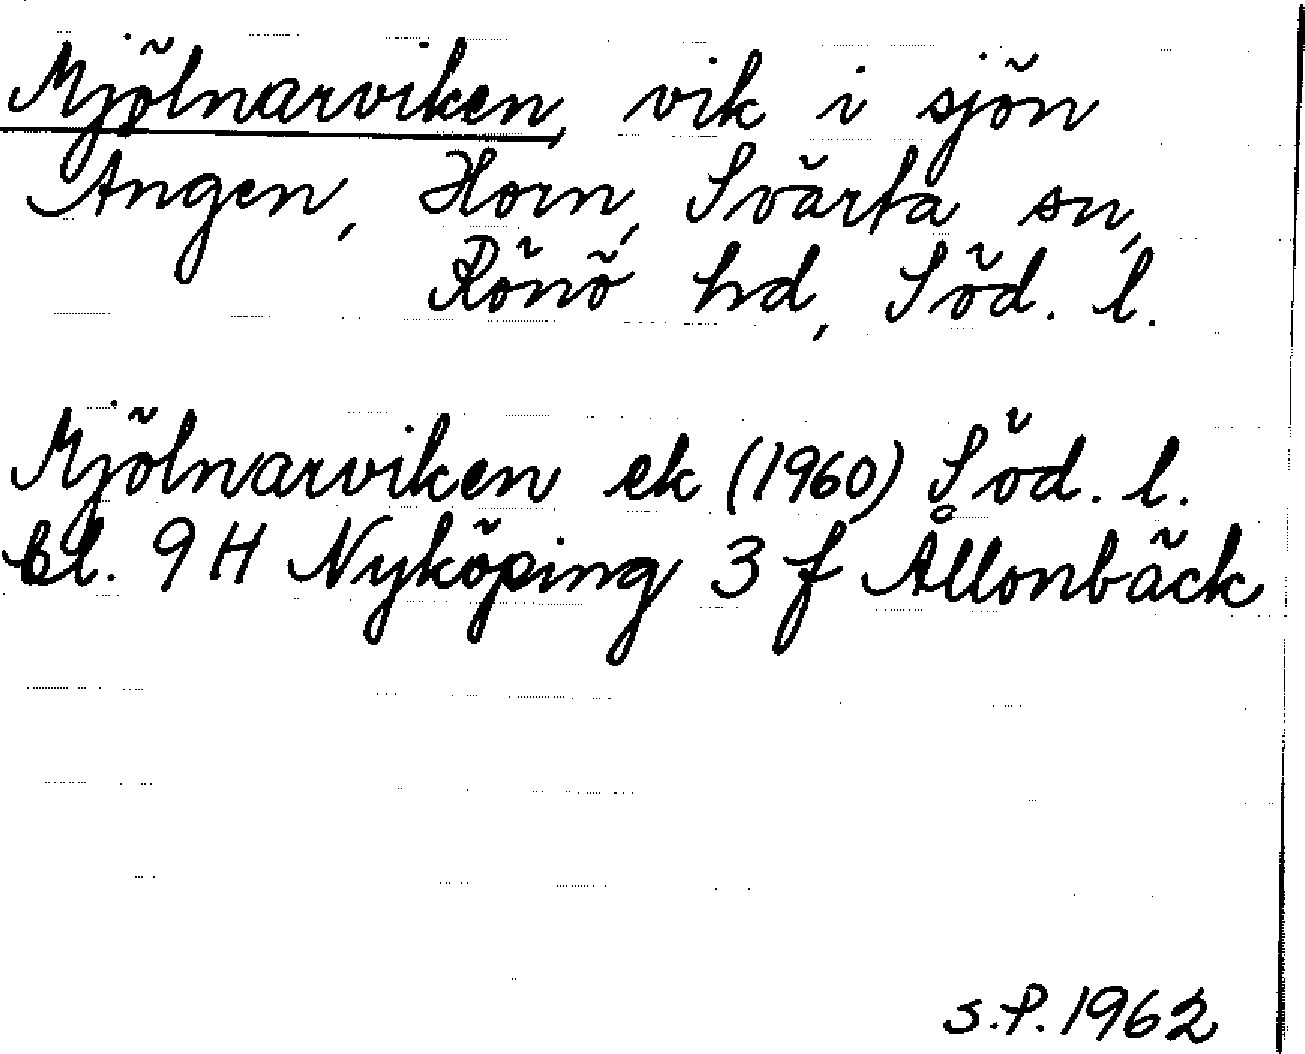 Mjölnarviken, vik i sjön
Angen, Horn, Svärta sn,
Rönö hd, Söd. l.
Mjölnarviken ek (1960) Söd. l.
bl. 9 H Nyköping 3 f Ållonbäck
S.P. 1962